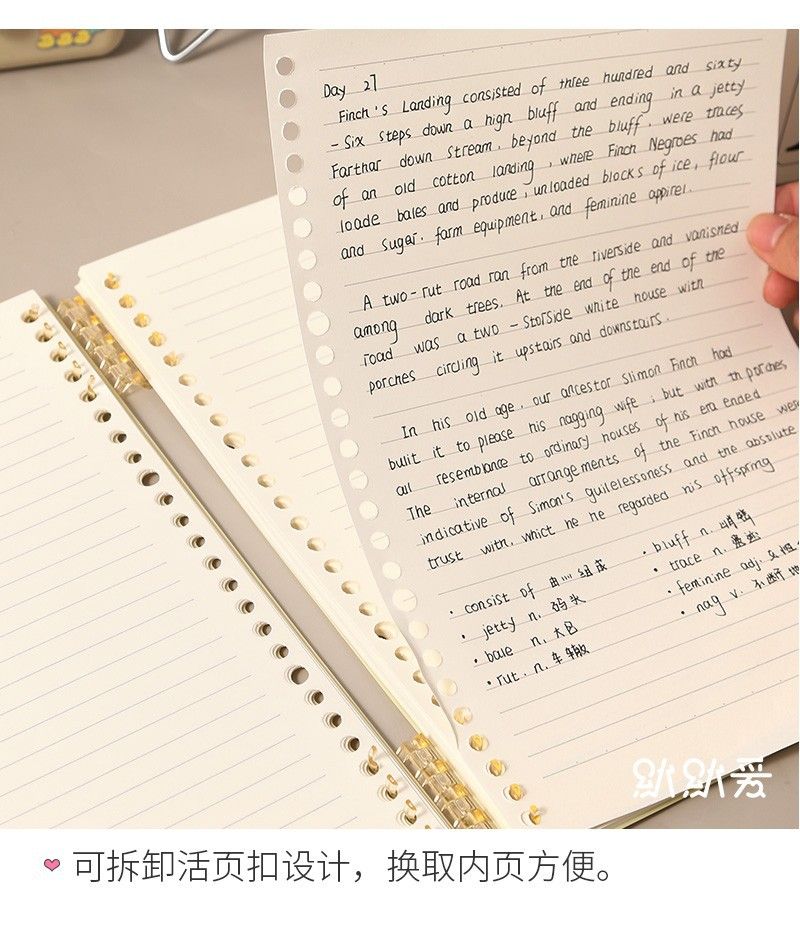 Day 27
Finch's Landing consisted of three hundred and sixty
-Six steps down a high bluff and ending in a jetty
Farthar down stream. beyond the bluff. were traces
of an old cotton landing, where Finch Negroes had
loade bales and produce, unloaded blocks of ice, flour
and sugar. farm equipment, and feminine appirel.
A two-rut road ran from the riverside and vanished
among dark trees. At the end of the end of the
road was a two-storside white house with
porches circling it upstairs and downstairs.
In his old age, our ancestor Slimon Finch had
bulit it to please his nagging wife; but with th porches
all resemblance to ordinary houses of his era ended
The internal arrangements of the Finch house were
indicative of Simon's guilelessoness and the absolute
trust with, whict he he regarded his offspring
· consist of 由...组成
· jetty n. 码头
· bale n. 大包
· rut. n. 车辙
· bluff n. 峭壁
· trace n. 遗迹
· feminine adj. 女性
· nag v. 不断地
趴趴爱
可拆卸活页扣设计，换取内页方便。